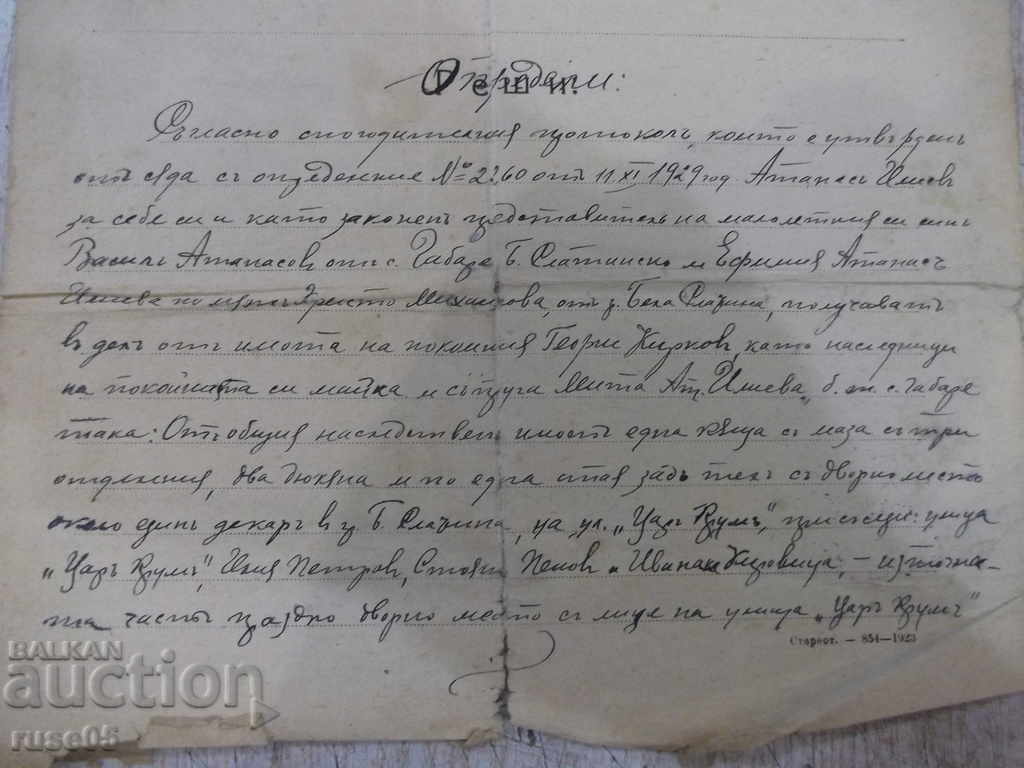 Определи:
Съгласно спогодителния протоколъ, който е утвърденъ
отъ съда съ опредѣление № 2260 отъ 11 XI 1929 год. Атанасъ Илиевъ
за себе си и като законенъ представитель на малолетния си синъ
Василъ Атанасовъ отъ с. Габаре Б. Слатинско и Ефимия Атанасъ
Илиева по мѫжъ Христо Михайлова, отъ гр. Бела Слатина, получаватъ
въ делъ отъ имота на покойния Георги Кирковъ, като наследници
на покойната си майка и съпруга Мита Ат. Илиева, б. ж. с. Габаре
така: Отъ общия наследственъ имотъ една кѫща съ маза съ три
отделения, два дюкяна и по една стая задъ техъ съ дворно место
около единъ декаръ въ гр. Б. Слатина, на ул. „Царъ Крумъ", при съседи: улица
„Царъ Крумъ", Илия Петровъ, Стоянъ Пеновъ и Иванка Кировица, – източна-
та часть праздно дворно место съ лице на улица „Царъ Крумъ"
Старопт. — 854—1923
BALKAN
auction
ruse05